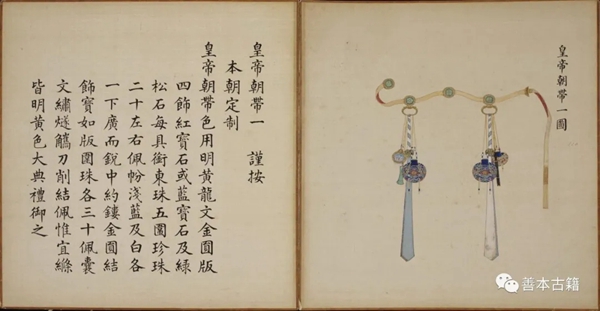 皇帝朝帶一圖
皇帝朝帶一 謹按
本朝定制
皇帝朝帶色用明黃龍文金圓版
四飾紅寶石或藍寶石及綠
松石每具銜東珠五圍珍珠
二十左右佩帉淺藍及白各
一下廣而銳中約鏤金圓結
飾寶如版圍珠各三十佩囊
文繡燧觿刀削結佩惟宜絛
皆明黃色大典禮御之
善本古籍